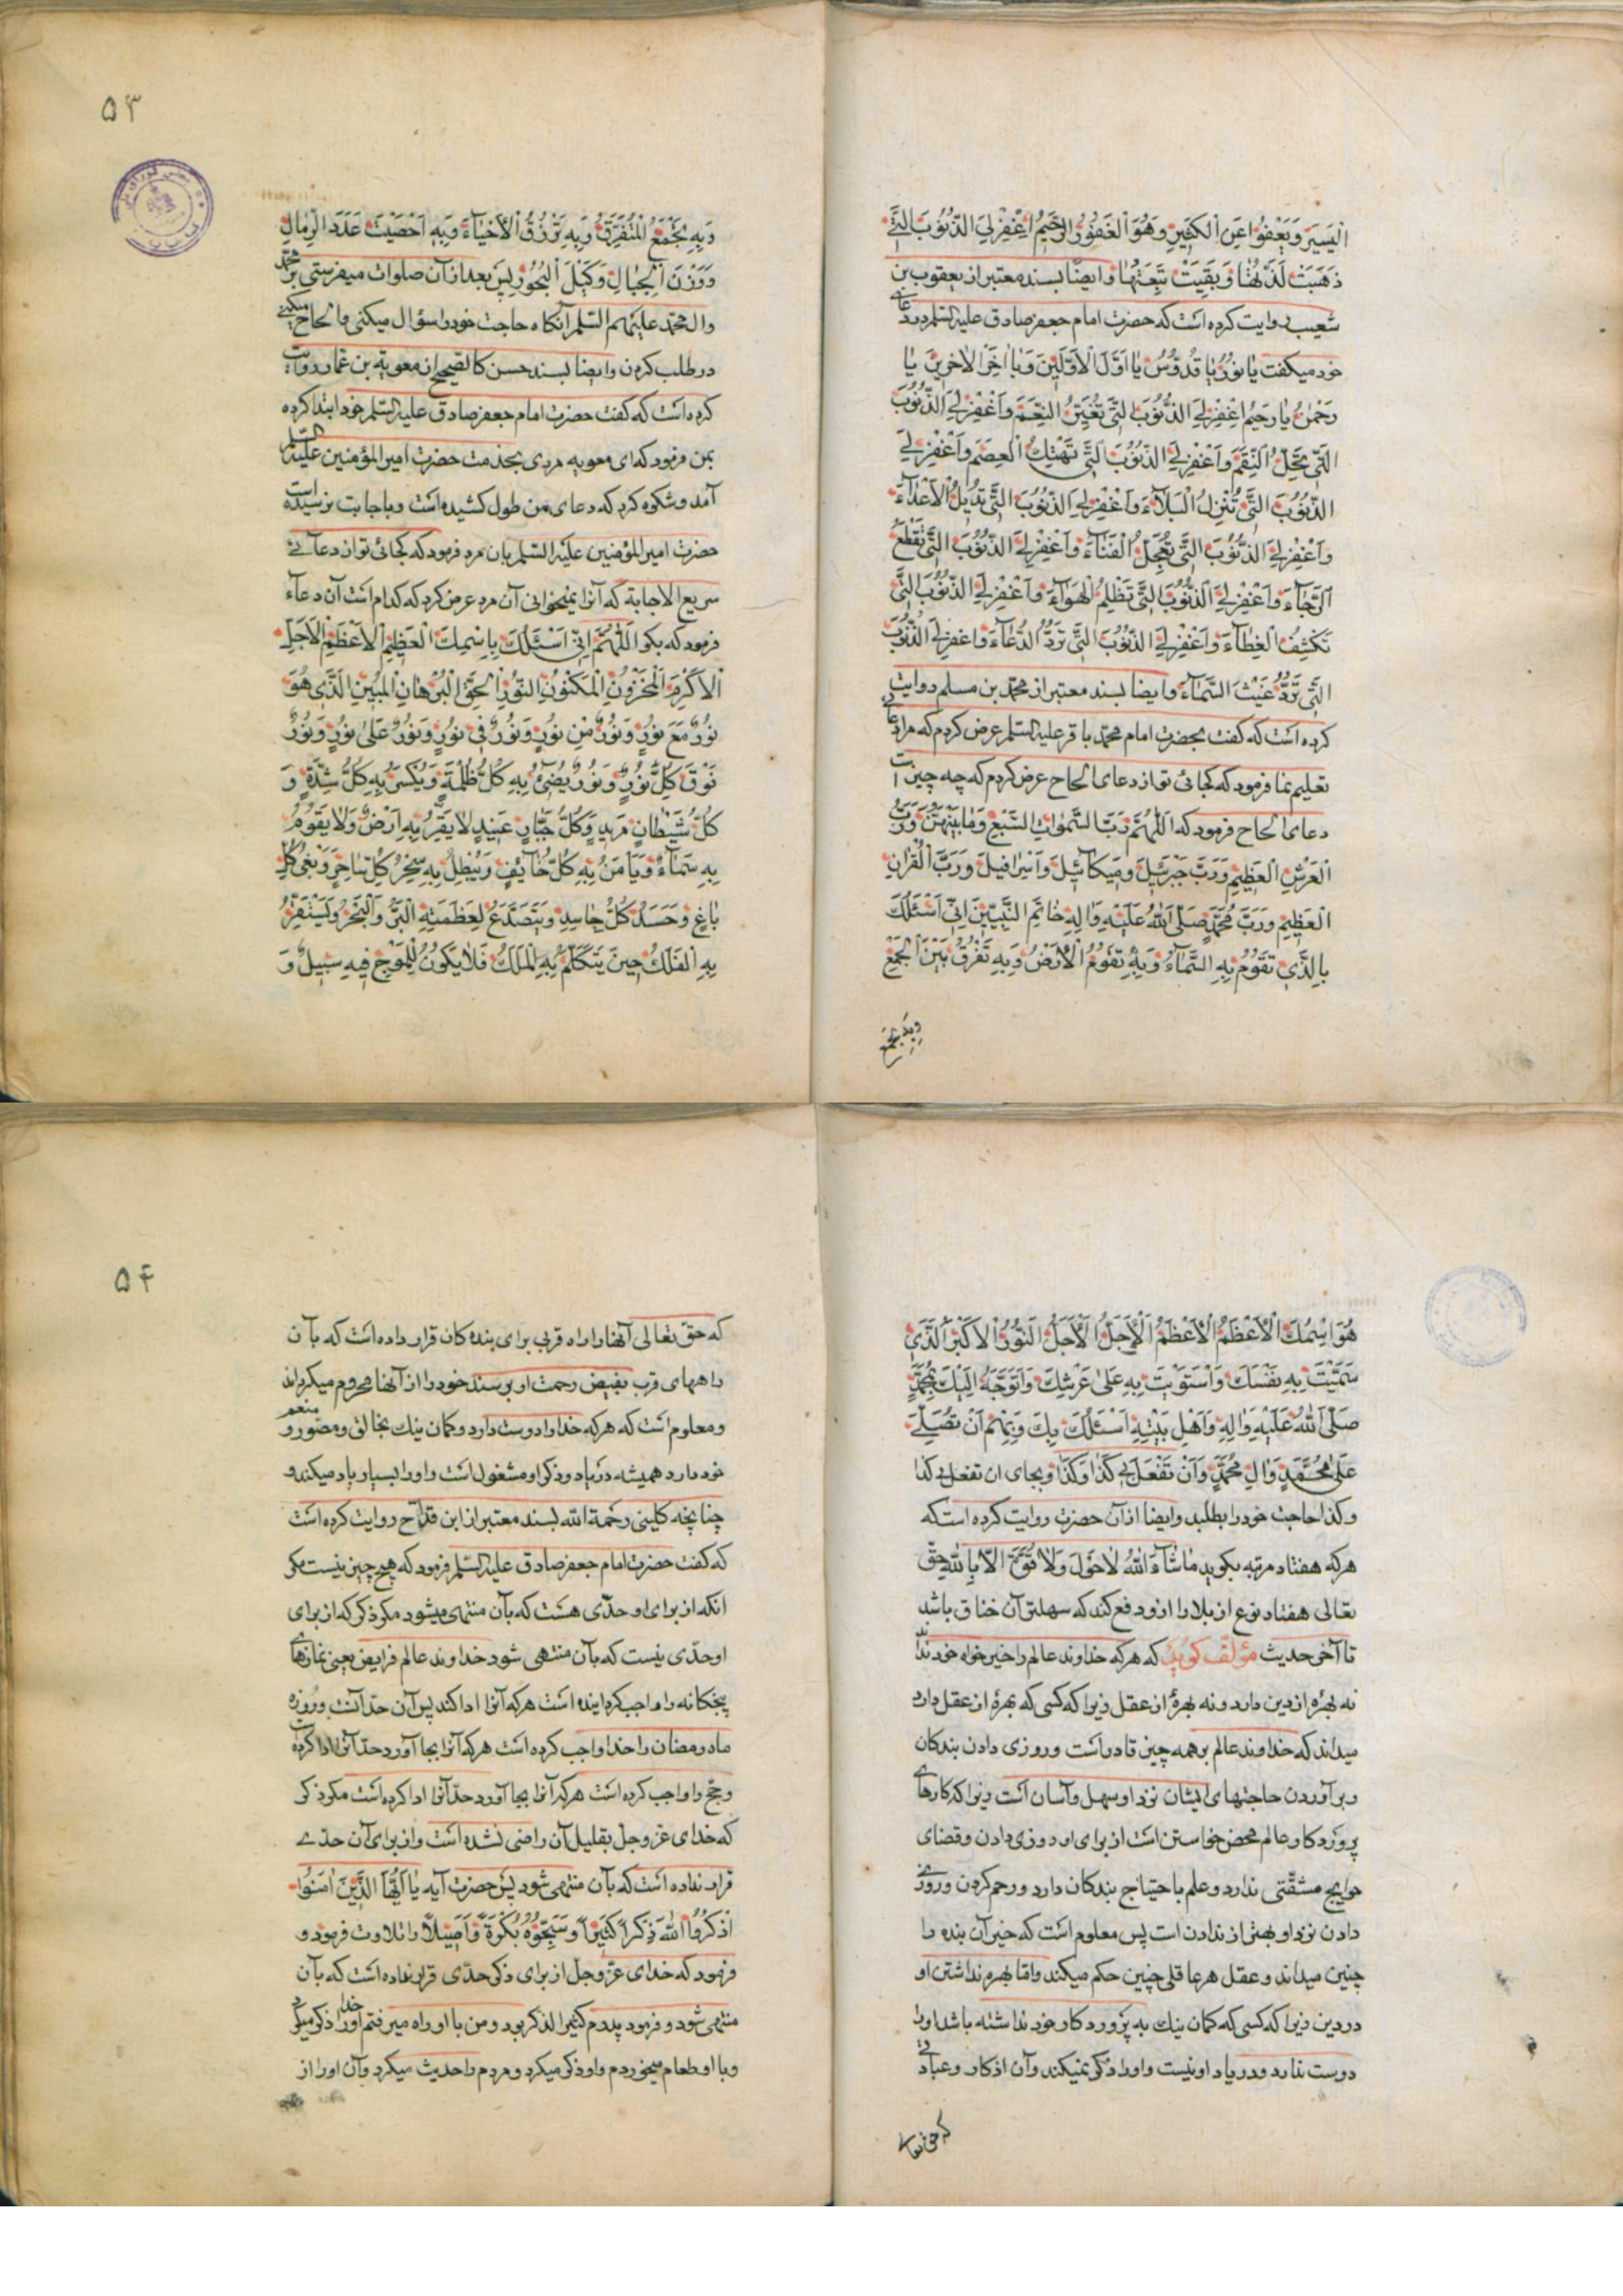 الْیَسیرَ وَیَعْفُوا عَنِ الْکَثیرِ وَهُوَ الْغَفُورُ الرَّحیمُ اغْفِرْ لِیَ الذُّنُوبَ الَّتی
ذَهَبَتْ لَذَّتُهٰا وَ بَقِیَتْ تَبِعَتُهٰا وایضًا بسند معتبر از یعقوب بن
شعیب روایت کرده است که حضرت امام جعفر صادق علیه السلم در دعای
خود میکفت یٰا نُورُ یٰا قُدُّوسُ یٰا اَوَّلَ الْاَوَّلینَ وَیٰا اٰخِرَ الْاٰخِرینَ یٰا
رَحْمٰنُ یٰا رَحیمُ اِغْفِرْ لِیَ الذُّنُوبَ الَّتی تُغَیِّرُ النِّعَمَ وَاغْفِرْ لِیَ الذُّنُوبَ
الَّتی تُحِلُّ النِّقَمَ وَاغْفِرْ لِیَ الذُّنُوبَ الَّتی تَهْتِكُ الْعِصَمَ وَاغْفِرْ لِیَ
الذُّنُوبَ الَّتی تُنْزِلُ الْبَلٰاۤءَ وَاغْفِرْ لِیَ الذُّنُوبَ الَّتی تُدیلُ الْاَعْدٰاۤءَ
وَاغْفِرْ لِیَ الذُّنُوبَ الَّتی تُعَجِّلُ الْفَنٰاۤءَ وَاغْفِرْ لِیَ الذُّنُوبَ الَّتی تَقْطَعُ
الرَّجٰاۤءَ وَاغْفِرْ لِیَ الذُّنُوبَ الَّتی تُظْلِمُ الْهَوٰاۤءَ وَاغْفِرْ لِیَ الذُّنُوبَ الَّتی
تَکْشِفُ الْغِطٰاۤءَ وَاغْفِرْ لِیَ الذُّنُوبَ الَّتی تَرُدُّ الدُّعٰاۤءَ وَاغفِرْ لِیَ الذُّنُوبَ
الَّتی تَرُدُّ غَیْثَ السَّمٰاۤءِ وایضا بسند معتبر از محمّد بن مسلم روایت
کرده است که کفت بحضرت امام محمّد باقر علیه السلم عرض کردم که مرا دعای
تعلیم نما فرمود که کجائی تو از دعای الحاح عرض کردم که چه چیز است
دعای الحاح فرمود که اَللّٰهُمَّ رَبَّ السَّمٰوٰاتِ السَّبْعِ وَمٰا بَیْنَهُنَّ وَرَبَّ
الْعَرْشِ الْعَظیمِ وَرَبَّ جَبْرَئیلَ وَمیکٰاۤئیلَ وَاِسْرٰافیلَ وَرَبَّ الْقُرْاٰنِ
الْعَظیمِ وَرَبَّ مُحَمَّدٍ صَلَّی اللّٰهُ عَلَیْهِ وَاٰلِهِ خٰاتَمِ النَّبِیّینَ اِنّی اَسْئَلُكَ
بِالَّذی تَقُومُ بِهِ السَّمٰاۤءُ وَبِهِ تَقُومُ الْاَرْضُ وَبِهِ تَفْرُقُ بَیْنَ الْجَمْعِ
وَبِهِ تَجْمَعُ
۵۳
وَبِهِ تَجْمَعُ الْمُتَفَرِّقَ وَبِهِ تَرْزُقُ الْاَحْیٰاۤءَ وَبِهِ اَحْصَیْتَ عَدَدَ الرِّمٰالِ
وَوَزْنَ الْجِبٰالِ وَکَیْلَ الْبُحُورِ پس بعد از آن صلوات میفرستی بر محمّد
وال محمّد علیهم السّلم آنکاه حاجت خود را سؤال میکنی والحاح میکنی
در طلب کردن وایضا بسند حسن کالصّحیح از معویة بن عمار روایت
کرده است که کفت حضرت امام جعفر صادق علیه السّلم خود ابتدا کرده
بمن فرمود که ای معویه مردی بخدمت حضرت امیر المؤمنین علیه السلم
آمد و شکوه کرد که دعای من طول کشیده است وباجابت نرسیده است
حضرت امیر المؤمنین علیه السّلم بان مرد فرمود که کجائی تو از دعائے
سریع الاجابة که آنرا نمیخوانی آن مرد عرض کرد که کدام است آن دعاء
فرمود که بکو اَللّٰهُمَّ اِنّی اَسْئَلُكَ بِاسْمِكَ الْعَظیمِ الْاَعْظَمِ الْاَجَلِّ
الْاَکْرَمِ الْمَخْزُونِ الْمَکْنُونِ النُّورِ الْحَقِّ الْبُرْهٰانِ الْمُبینِ الَّذی هُوَ
نُورٌ مَعَ نُورٍ وَنُورٌ مِنْ نُورٍ وَنُورٌ فی نُورٍ وَنُورٌ عَلیٰ نُورٍ وَنُورٌ
فَوْقَ کُلِّ نُورٍ وَنُورٌ یُضیۤئُ بِهِ کُلُّ ظُلْمَةٍ وَیُکْسَرُ بِهِ کُلُّ شِدَّةٍ وَ
کُلُّ شَیْطٰانٍ مَریدٍ وَکُلُّ جَبّٰارٍ عَنیدٍ لٰا یَقِرُّ بِهِ اَرْضٌ وَلٰا یَقُومُ
بِهِ سَمٰاۤءٌ وَیَاْمَنُ بِهِ کُلُّ خٰاۤئِفٍ وَیَبْطِلُ بِهِ سِحْرُ کُلِّ سٰاحِرٍ وَبَغْیُ کُلِّ
بٰاغٍ وَحَسَدُ کُلِّ حٰاسِدٍ وَیَتَصَدَّعُ لِعَظَمَتِهِ الْبَرُّ وَالْبَحْرُ وَیَسْتَقِرُّ
بِهِ الْفُلْكُ حینَ یَتَکَلَّمُ بِهِ الْمَلَكُ فَلٰا یَکُونُ لِلْمَوْجِ فیهِ سَبیلٌ وَ
هُوَ اسْمُكَ الْاَعْظَمُ الْاَعْظَمُ الْاَجَلُّ الْاَجَلُّ النُّورُ الْاَکْبَرُ الَّذی
سَمَّیْتَ بِهِ نَفْسَكَ وَاسْتَوَیْتَ بِهِ عَلیٰ عَرْشِكَ وَاَتَوَجَّهُ اِلَیْكَ بِمُحَمَّدٍ
صَلَّی اللّٰهُ عَلَیْهِ وَاٰلِهِ وَاَهْلِ بَیْتِهِ اَسْئَلُكَ بِكَ وَبِهِمْ اَنْ تُصَلِّیَ
عَلیٰ مُحَمَّدٍ وَاٰلِ مُحَمَّدٍ وَاَنْ تَفْعَلَ بی کَذٰا وَکَذٰا وبجای ان تفعل بی کذا
وکذا حاجت خود را بطلبد وایضا از آن حضرت روایت کرده است که
هرکه هفتاد مرتبه بکوید مٰا شٰاۤءَ اللّٰهُ لٰا حَوْلَ وَلٰا قُوَّةَ اِلّٰا بِاللّٰهِ حقّ
تعالی هفتاد نوع از بلا را از او دفع کند که سهلتر آن خناق باشد
تا آخر حدیث مؤلف کوید که هرکه خداوند عالم را خیر خواه خود نداند
نه بهرهٔ از دین دارد و نه بهرهٔ از عقل زیرا که کسی که بهرهٔ از عقل دارد
میداند که خداوند عالم بر همه چیز قادر است وروزی دادن بندکان
وبر آوردن حاجتهای ایشان نزد او سهل وآسان است زیرا که کارهای
پروردکار عالم محض خواستن است از برای او روزی دادن وقضای
حوایج مشقّتی ندارد وعلم باحتیاج بندکان دارد ورحم کردن وروزی
دادن نزد او بهتر از ندادن است پس معلوم است که خیر آن بنده را
چنین میداند وعقل هر عاقلی چنین حکم میکند واما بهره نداشتن او
در دین زیرا که کسی که کمان نیك به پروردکار خود نداشته باشد او را
دوست ندارد ودر یاد او نیست واورا ذکر نمیکند وآن اذکار وعباداتی
که حق تعالی
۵۴
که حقّ تعالی آنها را راه قربی برای بنده کان قرار داده است که بآن
راههای قرب بفیض رحمت او برسند خود را از آنها محروم میکرداند
ومعلوم است که هرکه خدا را دوست دارد وکمان نیك بخالق ومصوّر و منعم
خود دارد همیشه در یاد وذکر او مشغول است و اورا بسیار یاد میکند و
چنانچه کلینی رحمة الله بسند معتبر از ابن قدّاح روایت کرده است
که کفت حضرت امام جعفر صادق علیه السّلم فرمود که هیچ چیز نیست مکر
انکه از برای او حدّی هست که بآن منتهی میشود مکر ذکر که از برای
او حدّی نیست که بآن منتهی شود خداوند عالم فرایض یعنی نمازهای
پنجکانه را واجب کردانیده است هرکه آنرا ادا کند پس آن حدّ آنست وروزه
ماه رمضان را خدا واجب کرده است هرکه آنرا بجا آورد حدّ آنرا ادا کرده است
وحجّ را واجب کرده است هرکه آنرا بجا آورد حدّ آنرا ادا کرده است مکر ذکر
که خدای عزّ وجلّ بقلیل آن راضی نشده است واز برای آن حدّے
قرار نداده است که بآن منتهی شود پس حضرت آیه یٰا اَیُّهَا الَّذینَ اٰمَنُوا
اذْکُرُوا اللّٰهَ ذِکْرًا کَثیرًا وَسَبِّحُوهُ بُکْرَةً وَاَصیلًا را تلاوت فرمود و
فرمود که خدای عزّ وجلّ از برای ذکر حدّی قرار نداده است که بآن
منتهی شود و فرمود پدرم کثیر الذکر بود ومن با او راه میرفتم او خدا را ذکر میکرد
وبا او طعام میخوردم واو ذکر میکرد ومردم را حدیث میکرد وآن اورا از